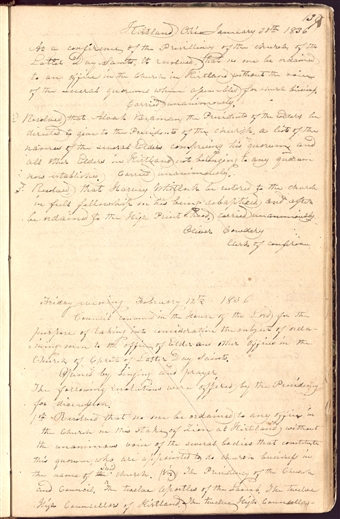 Kirtland Ohio January 30th 1836
At a conference of the Presidency of the church of the
Latter Day Saints, It resolved, that no one be ordained
to any office in the Church in Kirtland without the voice
of the several quorums when assembled for such business.
Carried unanimously.
2 Resolved that Alvah Beeman, the President of the Elders be
directed to give to the Presidents of the church, a list of the
names of the several Elders comprising his quorum, and
all other Elders in Kirtland, not belonging to any quorum
now established. Carried unanimously.
3. Resolved that Harvey Whitlock be restored to the church
in full fellowship on his being rebaptized, and after
be ordained to the High Priesthood, carried unanimously
Oliver Cowdery
Clerk of conference
Friday morning February 12th 1836
Council convened in the House of the Lord, for the
purpose of taking into consideration the subject of orda-
ining men to the office of Elder and other offices in the
Church of Christ of Latter Day Saints.
Opened by Singing and prayer.
The following resolutions were offered by the Presidency
for discussion.
1st Resolved that no one be ordained to any office in
the Church in the Stake of Zion at Kirtland, without
the unanimous voice of the several bodies that constitute
this quorum who are appointed to do church business in
the name of said church. (Viz) The Presidency of the Church
and Council, The twelve Apostles of the Lamb, The twelve
High Counsellors of Kirtland, The twelve High Counsellors